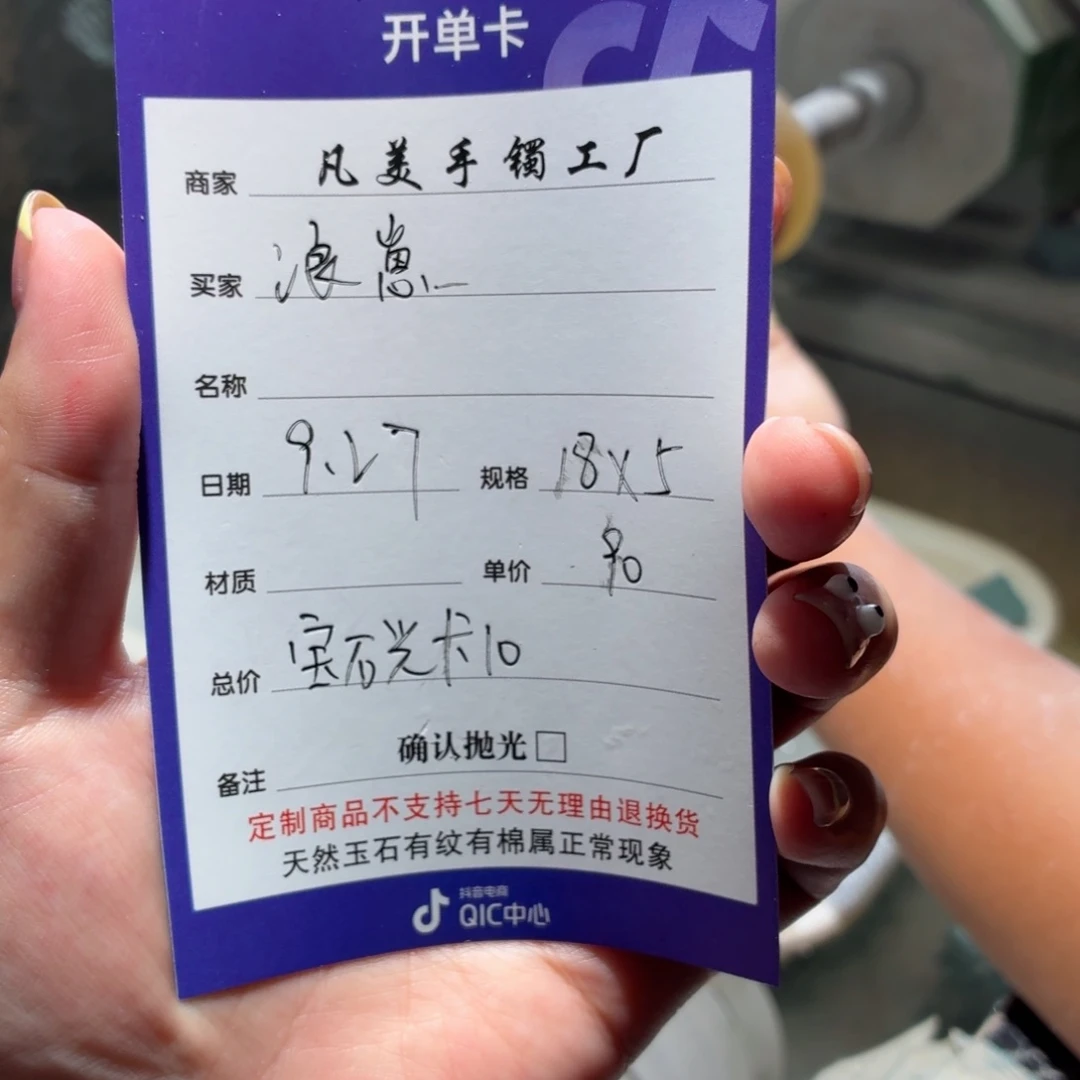 开单卡
商家 凡美手镯工厂
买家 浪崽
名称
日期 9.27 规格 18X5
材质 单价 90
总价 宝石光卡10
确认抛光□
备注
定制商品不支持七天无理由退换货
天然玉石有纹有棉属正常现象
抖音电商
QIC中心